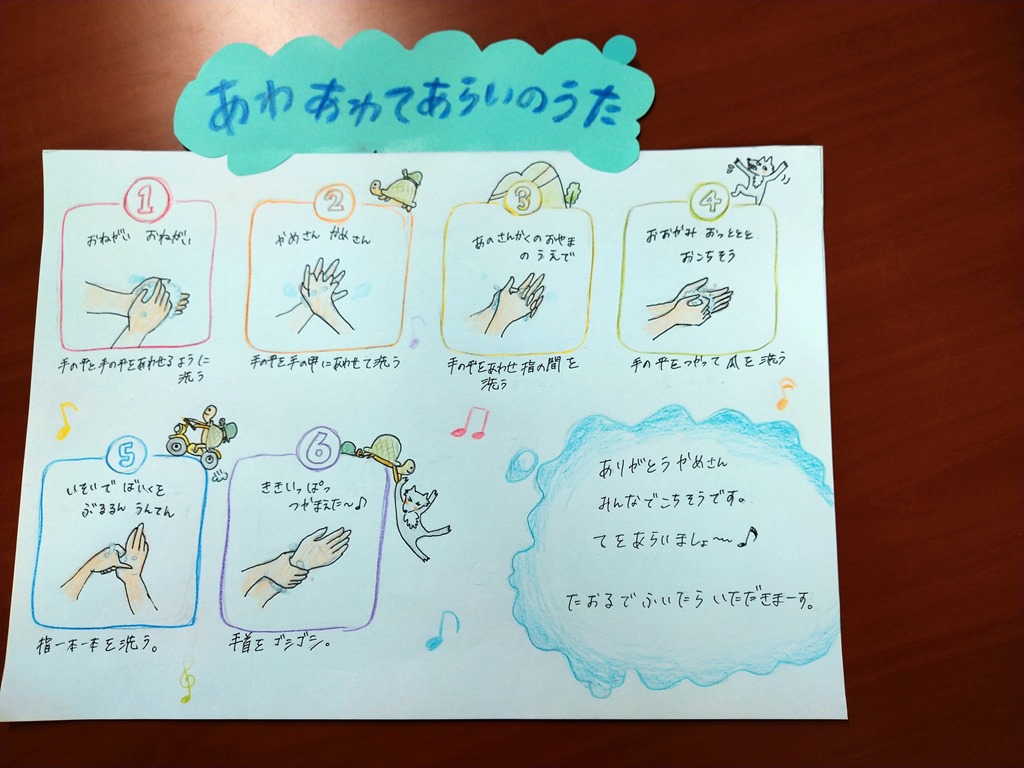 あわあわてあらいのうた
1
おねがい おねがい
手の平と手の平をあわせるように
洗う
2
かめさん かめさん
手の平と手の甲にあわせて洗う
3
あのさんかくのおやま
のうえで
手の平をあわせ指の間を
洗う
4
おおかみ おっととと
おこちそう
手の平をつかって爪を洗う
5
いそいで ばいくを
ぶるるん うんてん
指一本一本を洗う。
6
ききいっぱつ
つかまえた〜♪
手首をゴシゴシ。
ありがとう かめさん
みんなでこちそうです。
てをあらいましょ〜♪
たおるでふいたら いただきまーす。